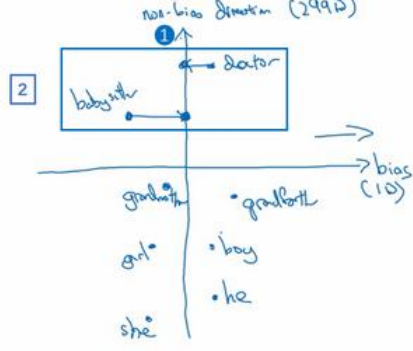 non-bias direction (299D)
1
doctor
2
babysitter
bias
(1D)
grandmoth
grandfath
girl
boy
he
she